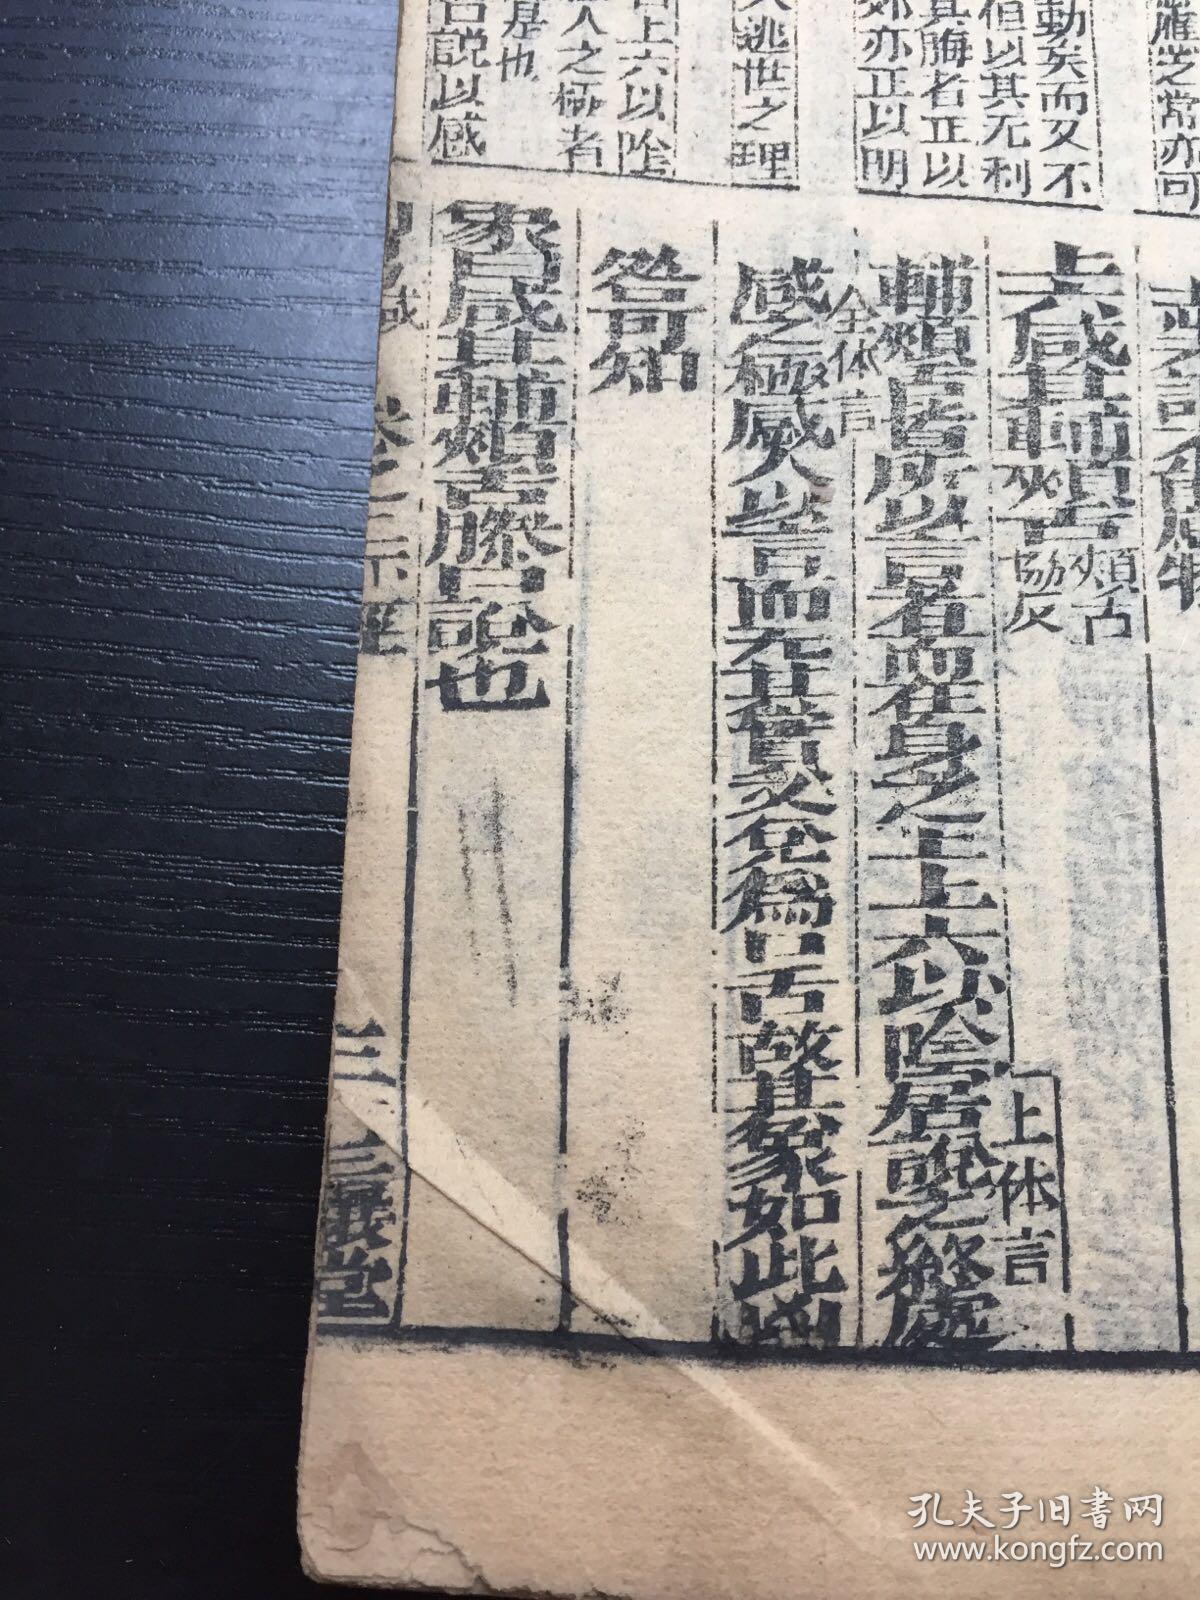 動矣而又不
但以其无利
其脢者正以
亦正以明
逃世之理
上六以陰
人之極者
是也
説以感
上六咸其輔頰舌
頰古
協反
輔頰舌皆所以言者而在身之上上六以陰居說之終處
上体言
全体言
感之極感人以言而无其實又兌爲口舌故其象如此凶
咎可知
象曰咸其輔頰舌滕口說也
卷之二
三
三讓堂
孔夫子旧书网
www.kongfz.com